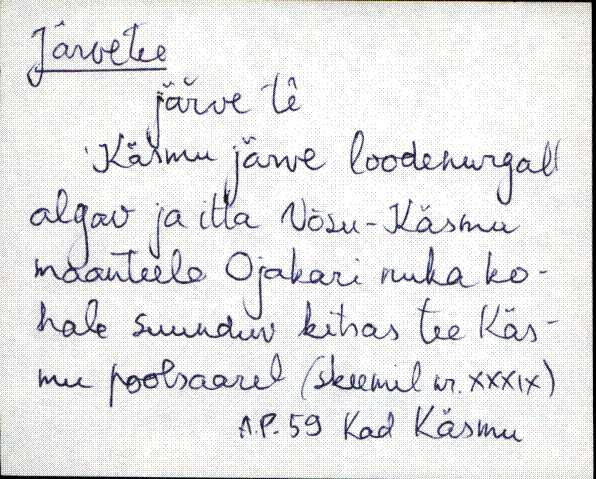 Järvetee
järve tē
Käsmu järve loodenurgal
algav ja itta Võsu-Käsmu
maanteele Ojakari nuka ko-
hale suunduv kitsas tee Käs-
mu poolsaarel (skeemil nr. XXXIX)
A.P. 59 Kad Käsmu